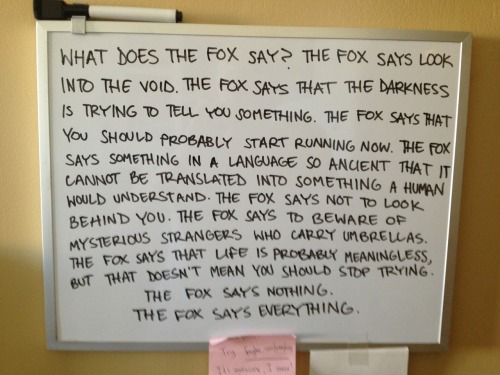 WHAT DOES THE FOX SAY? THE FOX SAYS LOOK
INTO THE VOID. THE FOX SAYS THAT THE DARKNESS
IS TRYING TO TELL YOU SOMETHING. THE FOX SAYS THAT
YOU SHOULD PROBABLY START RUNNING NOW. THE FOX
SAYS SOMETHING IN A LANGUAGE SO ANCIENT THAT IT
CANNOT BE TRANSLATED INTO SOMETHING A HUMAN
WOULD UNDERSTAND. THE FOX SAYS NOT TO LOOK
BEHIND YOU. THE FOX SAYS TO BEWARE OF
MYSTERIOUS STRANGERS WHO CARRY UMBRELLAS.
THE FOX SAYS THAT LIFE IS PROBABLY MEANINGLESS,
BUT THAT DOESN'T MEAN YOU SHOULD STOP TRYING.
THE FOX SAYS NOTHING.
THE FOX SAYS EVERYTHING.
Try